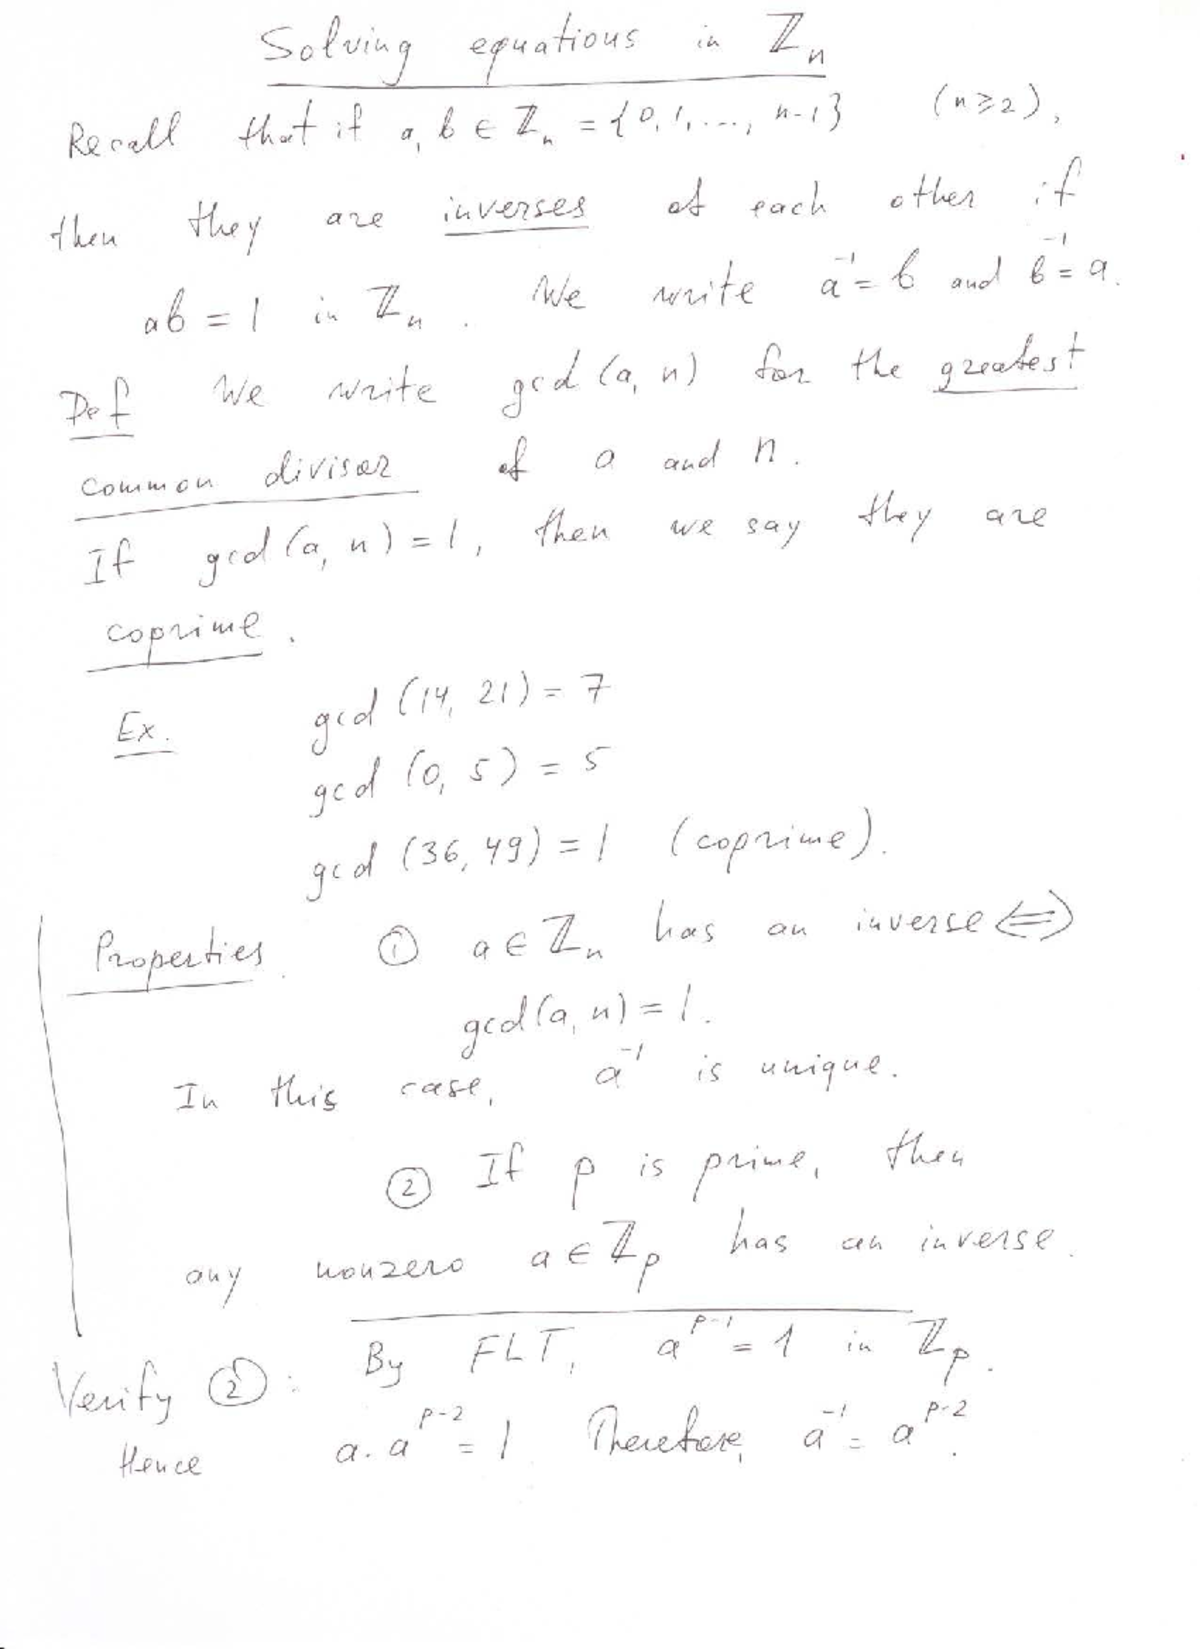 Solving equations in ℤₙ
Recall that if a, b ∈ ℤₙ = {0, 1, ..., n-1} (n ≥ 2),
then they are inverses of each other if
ab = 1 in ℤₙ. We write a⁻¹ = b and b⁻¹ = a.
Def We write gcd (a, n) for the greatest
common divisor of a and n.
If gcd (a, n) = 1, then we say they are
coprime.
Ex. gcd (14, 21) = 7
gcd (0, 5) = 5
gcd (36, 49) = 1 (coprime).
Properties. ① a ∈ ℤₙ has an inverse ⇔
gcd (a, n) = 1.
In this case, a⁻¹ is unique.
② If p is prime, then
any nonzero a ∈ ℤₚ has an inverse.
Verify ②: By FLT, aᵖ⁻¹ = 1 in ℤₚ.
Hence a · aᵖ⁻² = 1 Therefore, a⁻¹ = aᵖ⁻².